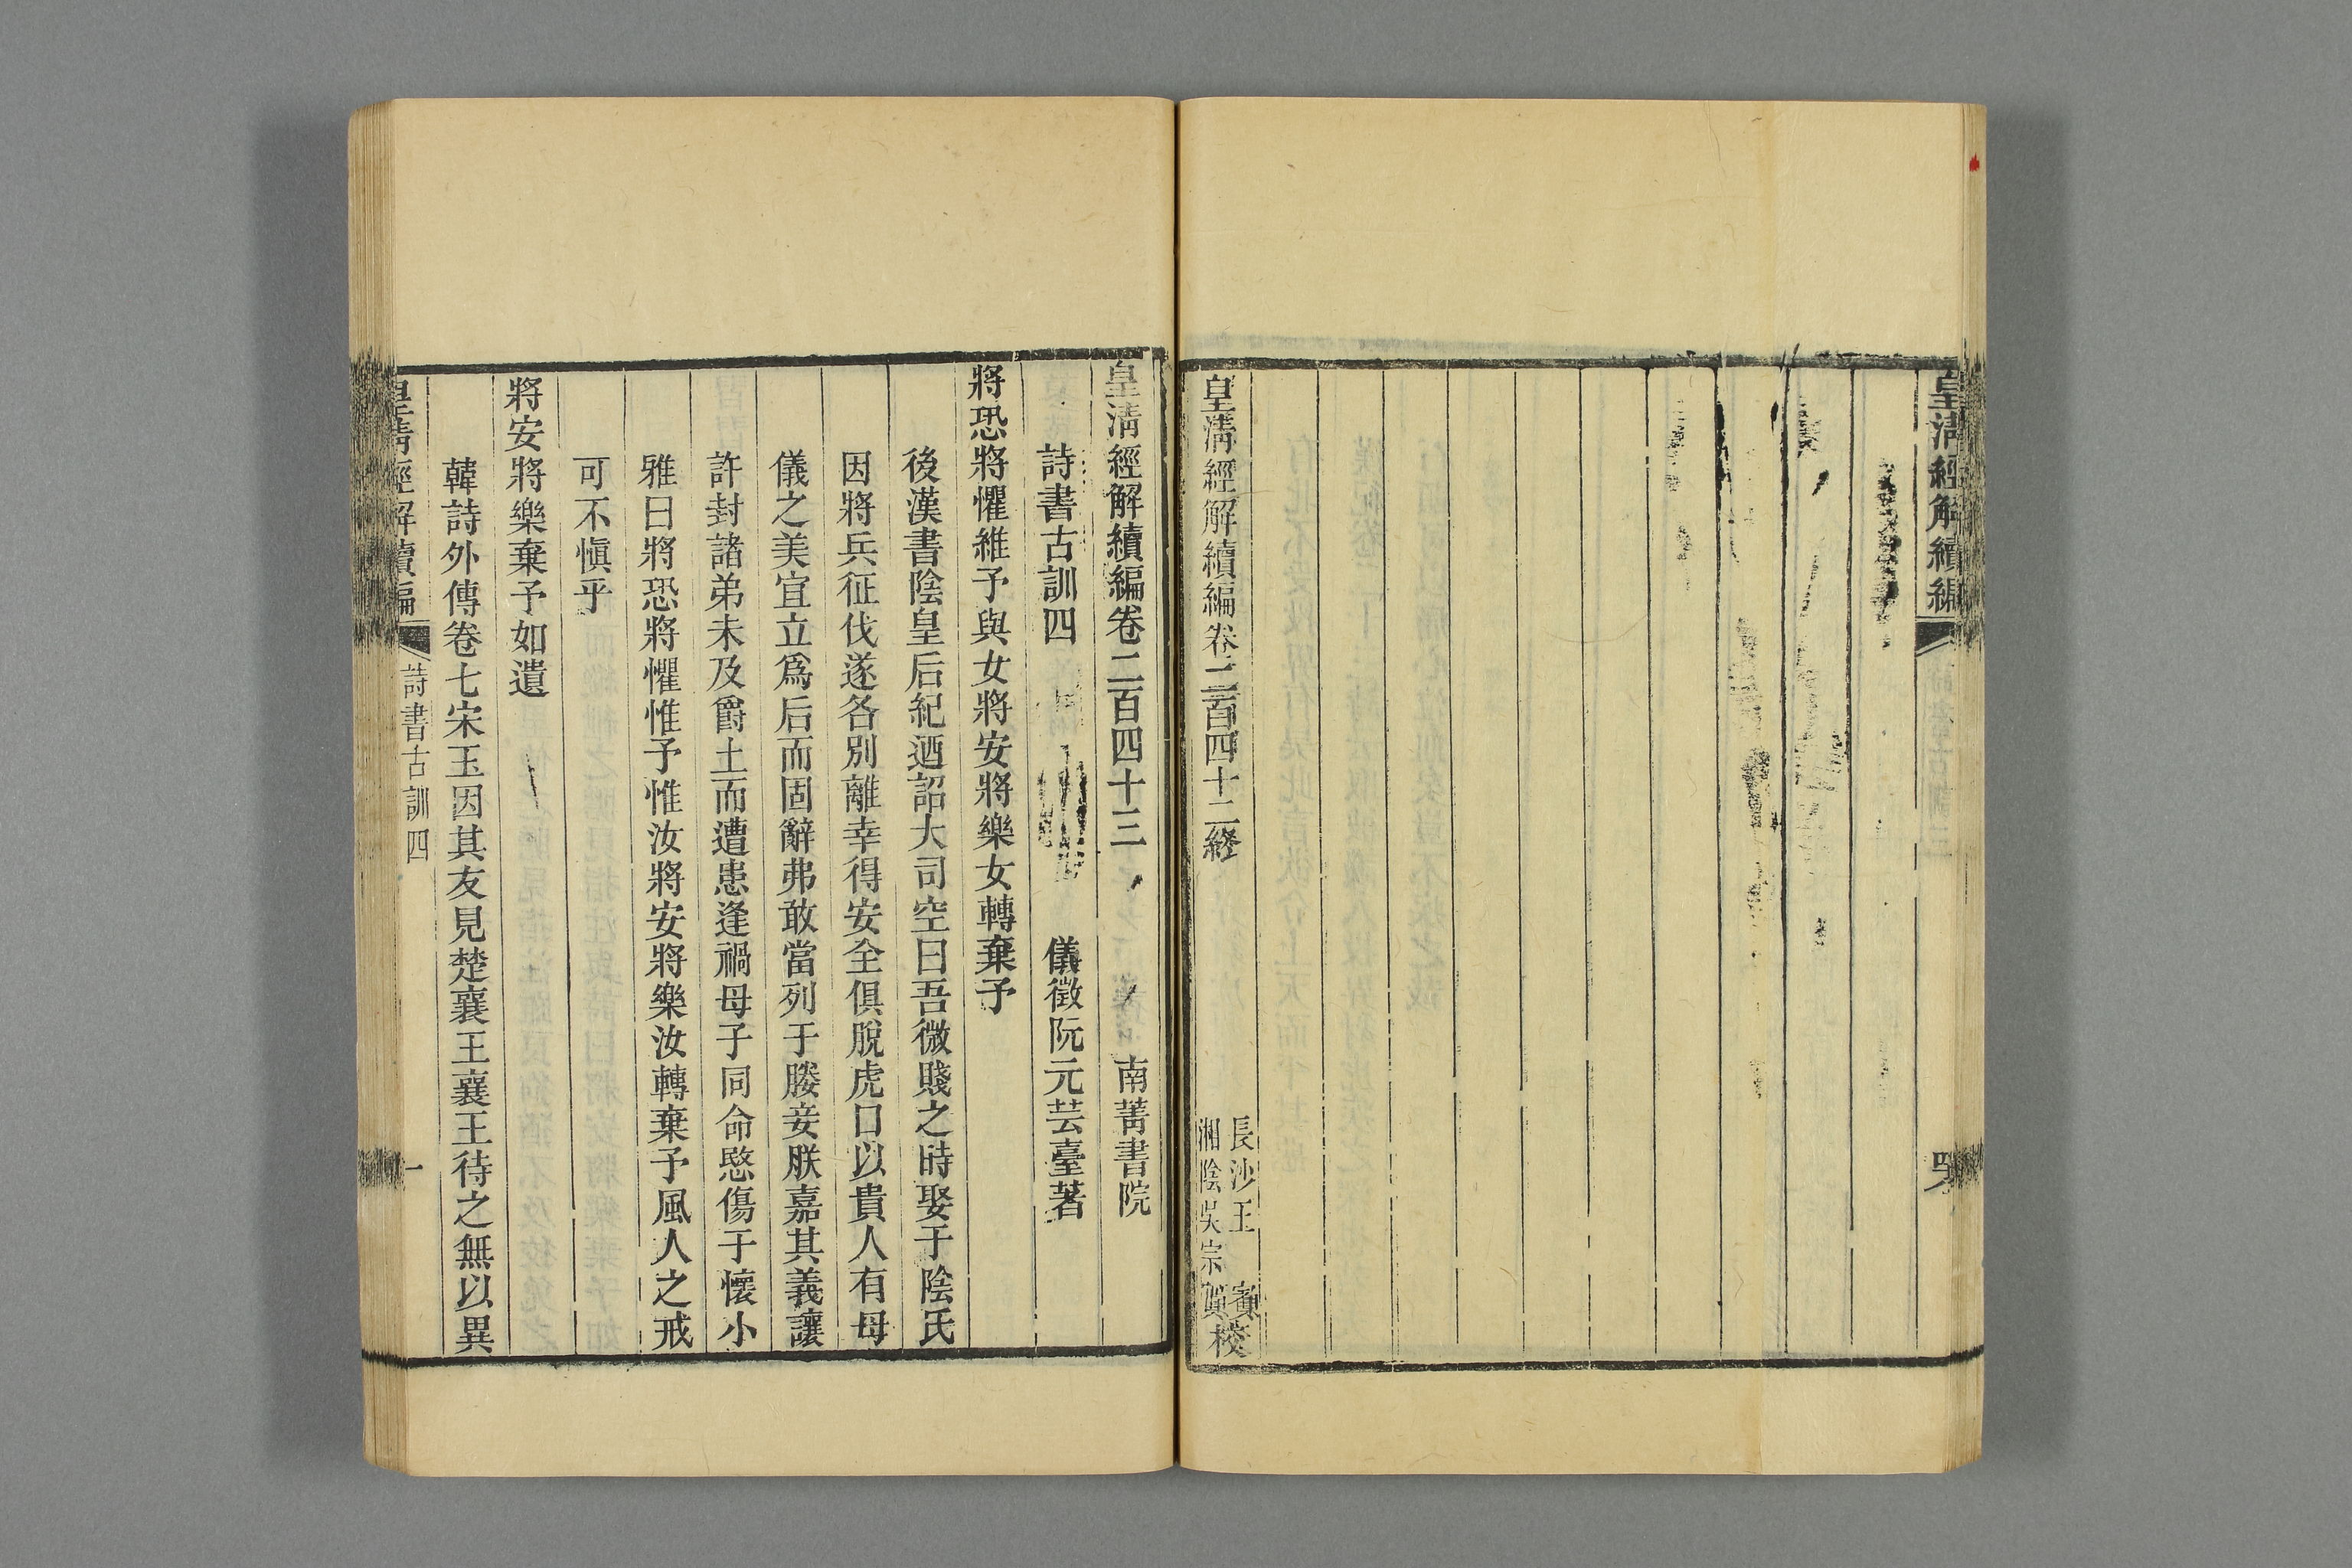 皇淸經解續編
皇淸經解續編卷二百四十二終
長沙王賓
湘陰吳宗
校
皇淸經解續編卷二百四十三
南菁書院
詩書古訓四
儀徵阮元芸臺著
將恐將懼維予與女將安將樂女轉棄予
後漢書陰皇后紀迺詔大司空曰吾微賤之時娶于陰氏
因將兵征伐遂各別離幸得安全俱脫虎口以貴人有母
儀之美宜立爲后而固辭弗敢當列于媵妾朕嘉其義讓
許封諸弟未及爵土而遭患逢禍母子同命愍傷于懷小
雅曰將恐將懼惟予惟汝將安將樂汝轉棄予風人之戒
可不愼乎
將安將樂棄予如遺
韓詩外傳卷七宋玉因其友見楚襄王襄王待之無以異
皇淸經解續編
詩書古訓四
一